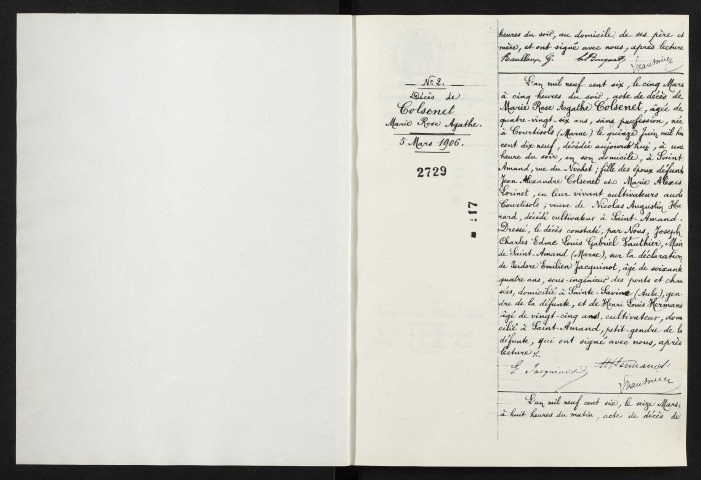 N° 2.
Décès de
Colsenet
Marie Rose Agathe.
5 Mars 1906.
2729
17
heures du soir, au domicile de ses père et
mère, et ont signé avec nous, après lecture
L'an mil neuf cent six, le cinq Mars
à cinq heures du soir, acte de décès de
Marie Rose Agathe Colsenet, âgée de
quatre-vingt-six ans, sans profession, née
à Courtisols (Marne) le quinze Juin mil hu
cent dix-neuf, décédée aujourd'hui, à une
heure du soir, en son domicile, à Saint
Amand, rue du Nochet; fille des époux défunts
Jean Alexandre Colsenet et Marie Alexis
Lorinet, en leur vivant cultivateurs audi
Courtisols; veuve de Nicolas Augustin Hé
rard, décédé cultivateur à Saint-Amand.
Dressé, le décès constaté, par Nous, Joseph
Charles Edme Louis Gabriel Vauthier, Mair
de Saint-Amand (Marne), sur la déclaration
de Isidore Emilien Jacquinot, âgé de soixant
quatre ans, sous-ingénieur des ponts et chau
sées, domicilié à Sainte-Savine (Aube), gen
dre de la défunte, et de Henri Louis Hermans
âgé de vingt-cinq ans, cultivateur, dom
cilié à Saint-Amand, petit-gendre de la
défunte, qui ont signé avec nous, après
lecture.
E. Jacquinot
L'an mil neuf cent six, le seize Mars,
à huit heures du matin, acte de décès de